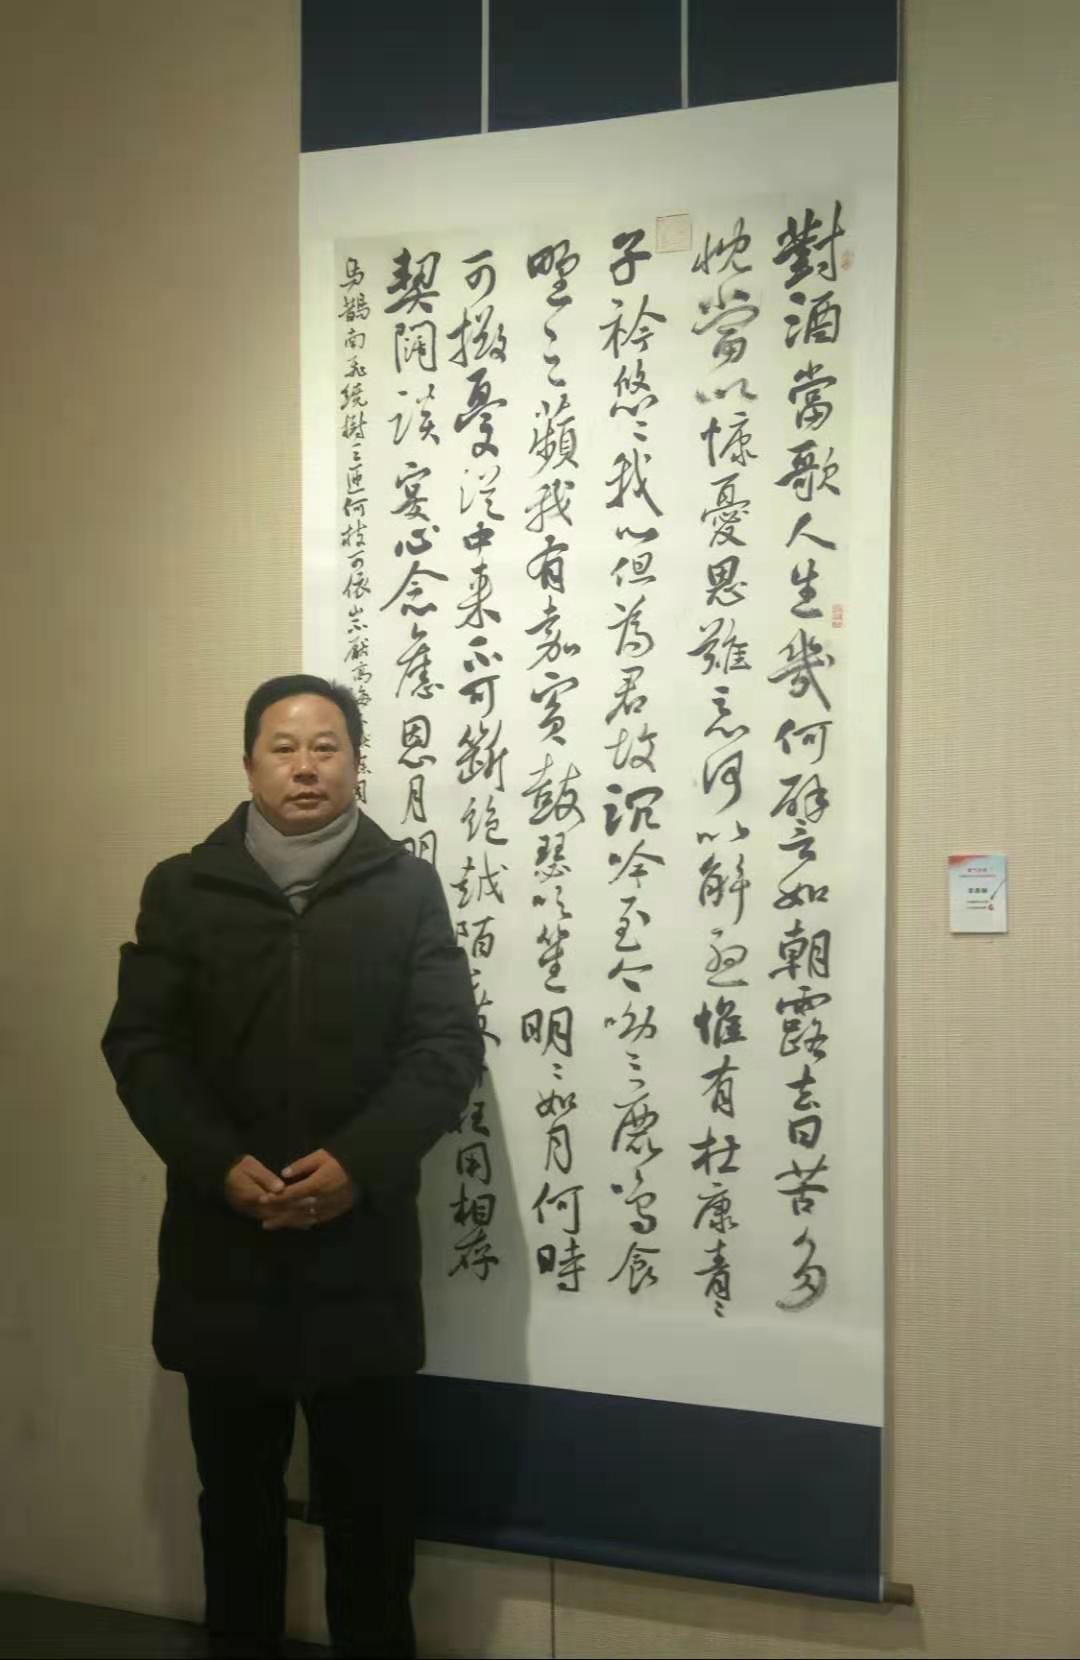 對酒當歌人生幾何譬言如朝露去日苦多
慨當以慷憂思難忘何以解憂惟有杜康青〻
子衿悠〻我心但為君故沉吟至今呦〻鹿鳴食
野〻苹我有嘉賓鼓瑟吹笙明〻如月何時
可掇憂從中來不可斷絕越陌 枉用相存
契闊談宴心念舊恩月明
烏鵲南飛繞樹三匝何枝可依山不厭高海